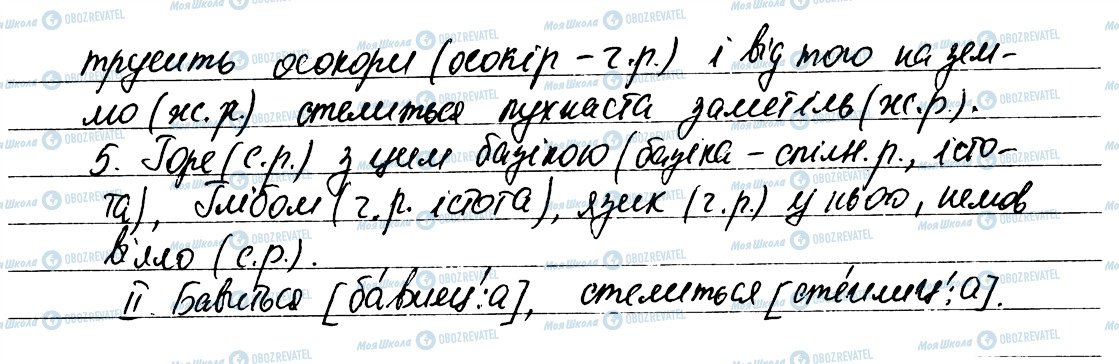 трусить осокори (осокір – ч.р.) і від того на зем-
лю (ж.р.) стелиться пухнаста заметіль (ж.р.).
5. Горе (с.р.) з цим базікою (базіка – спільн. р., істо-
та), Глібом (ч.р. істота), язик (ч.р.) у нього, немов
віяло (с.р.).
II Бавиться [ба́виец':а], стелиться [сте́лиц':а].